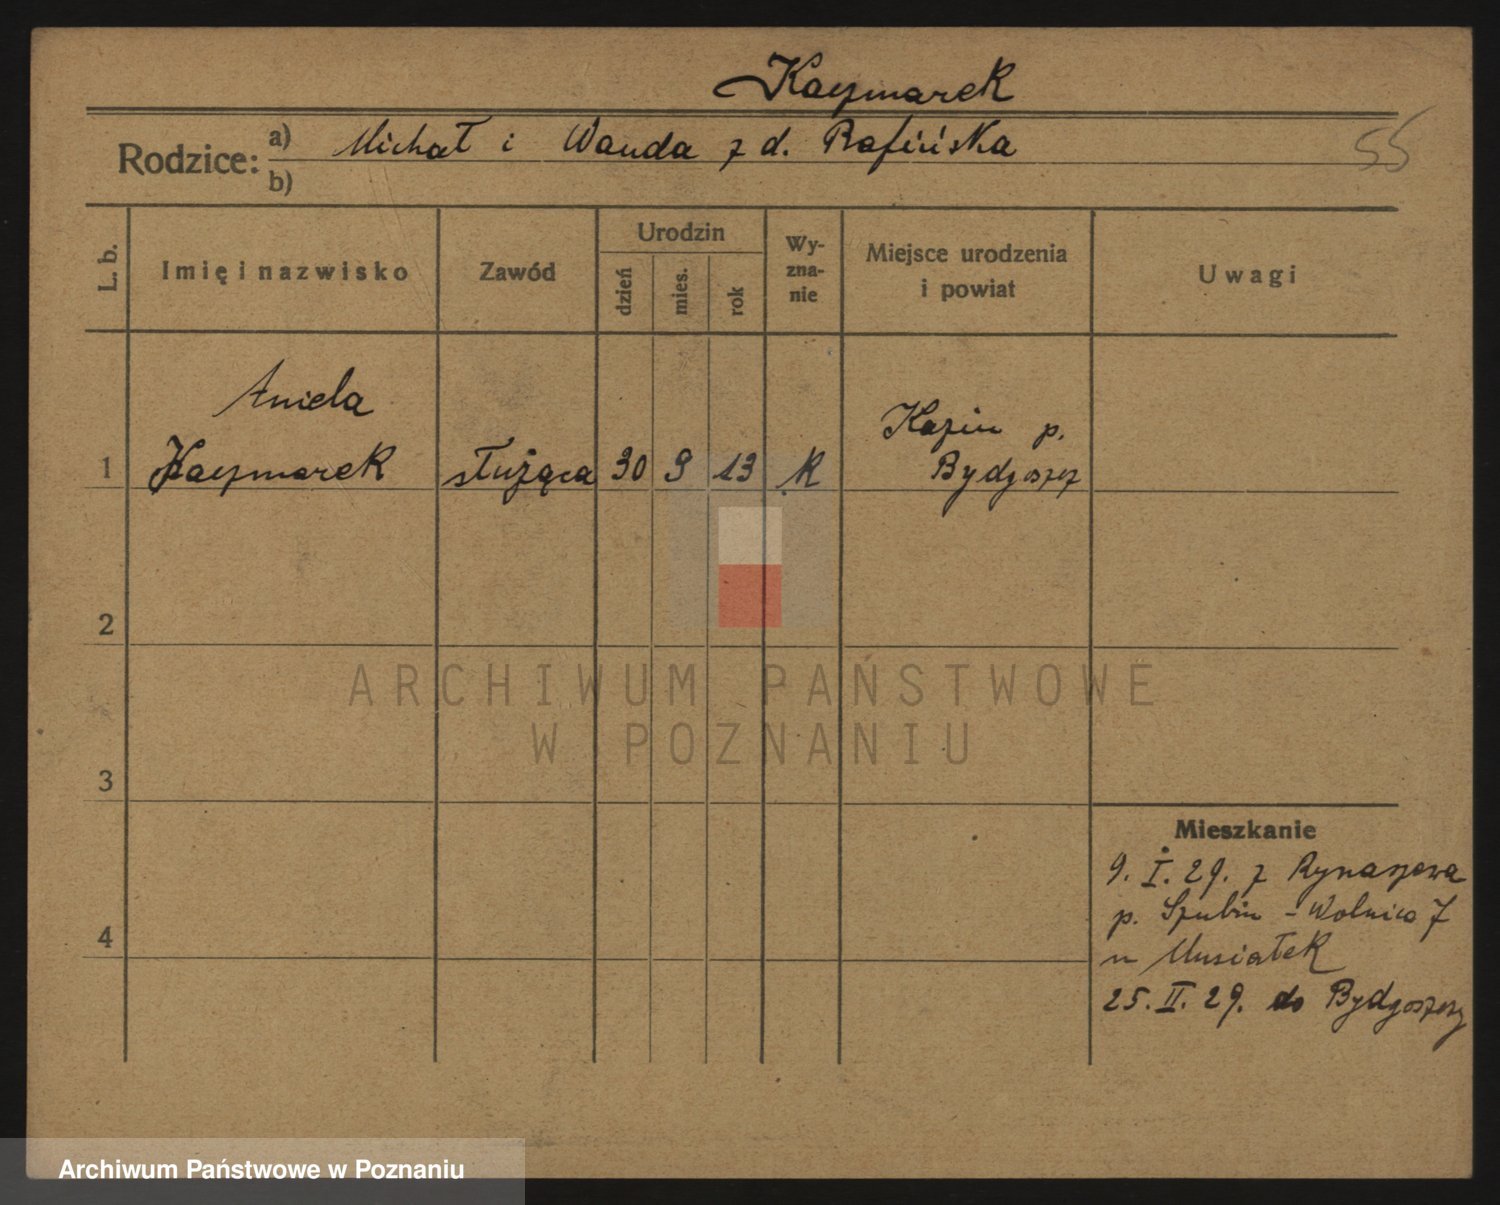 Kaczmarek
Rodzice: a) Michał i Wanda z d. Rafińska
b)
55
L. b.
Imię i nazwisko
Zawód
Urodzin
dzień
mies.
rok
Wy-
zna-
nie
Miejsce urodzenia
i powiat
Uwagi
Aniela
1 Kaczmarek służąca 30 9 13 K
Kazin p.
Bydgoszcz
2
3
4
Mieszkanie
9. I. 29. z Rynarzewa
p. Szubin - Wolnica 7
u Musiałek
25. II. 29. do Bydgoszczy
ARCHIWUM PAŃSTWOWE
W POZNANIU
Archiwum Państwowe w Poznaniu